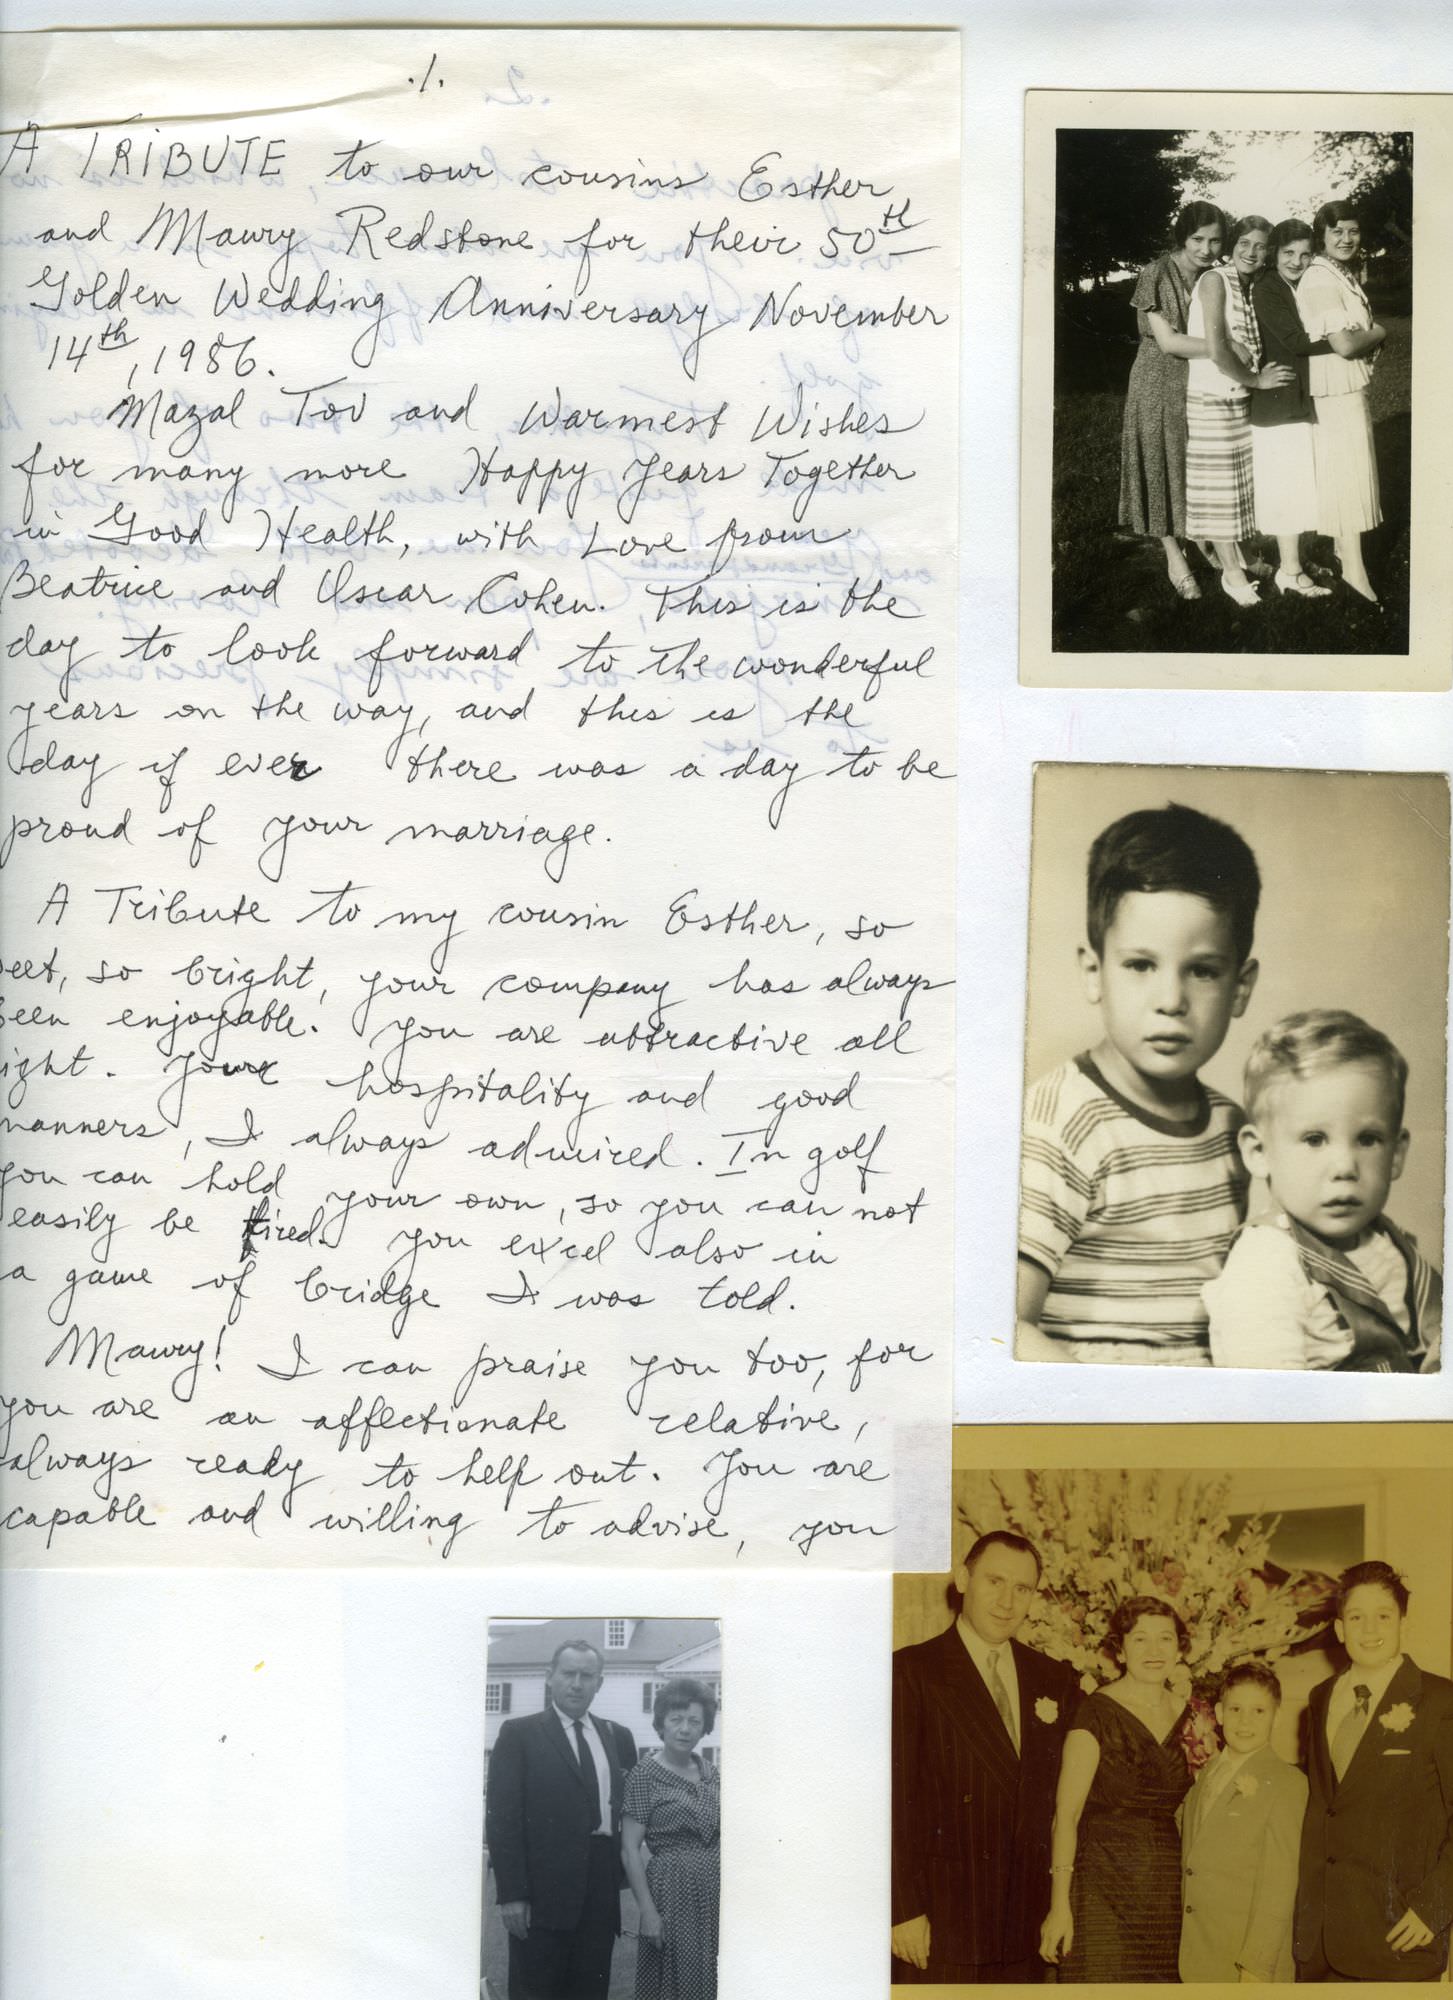 .1.
A TRIBUTE to our cousins Esther
and Maury Redstone for their 50th
Golden Wedding Anniversary November
14th, 1986.
Mazal Tov and Warmest Wishes
for many more Happy Years Together
in Good Health, with Love from
Beatrice and Oscar Cohen. This is the
day to look forward to the wonderful
years on the way, and this is the
day if ever there was a day to be
proud of your marriage.
A Tribute to my cousin Esther, so
eet, so bright, your company has always
been enjoyable. You are attractive all
ight. Your hospitality and good
manners, I always admired. In golf
you can hold your own, so you can not
easily be fired. You excel also in
a game of bridge I was told.
Maury! I can praise you too, for
you are an affectionate relative,
always ready to help out. You are
capable and willing to advise, you